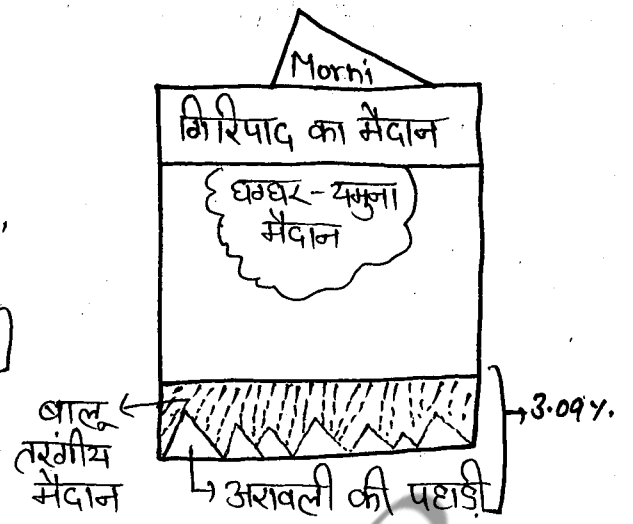 Morni
गिरिपाद का मैदान
घग्घर-यमुना
मैदान
बालू
तरंगीय
मैदान
3.09%.
अरावली की पहाड़ी